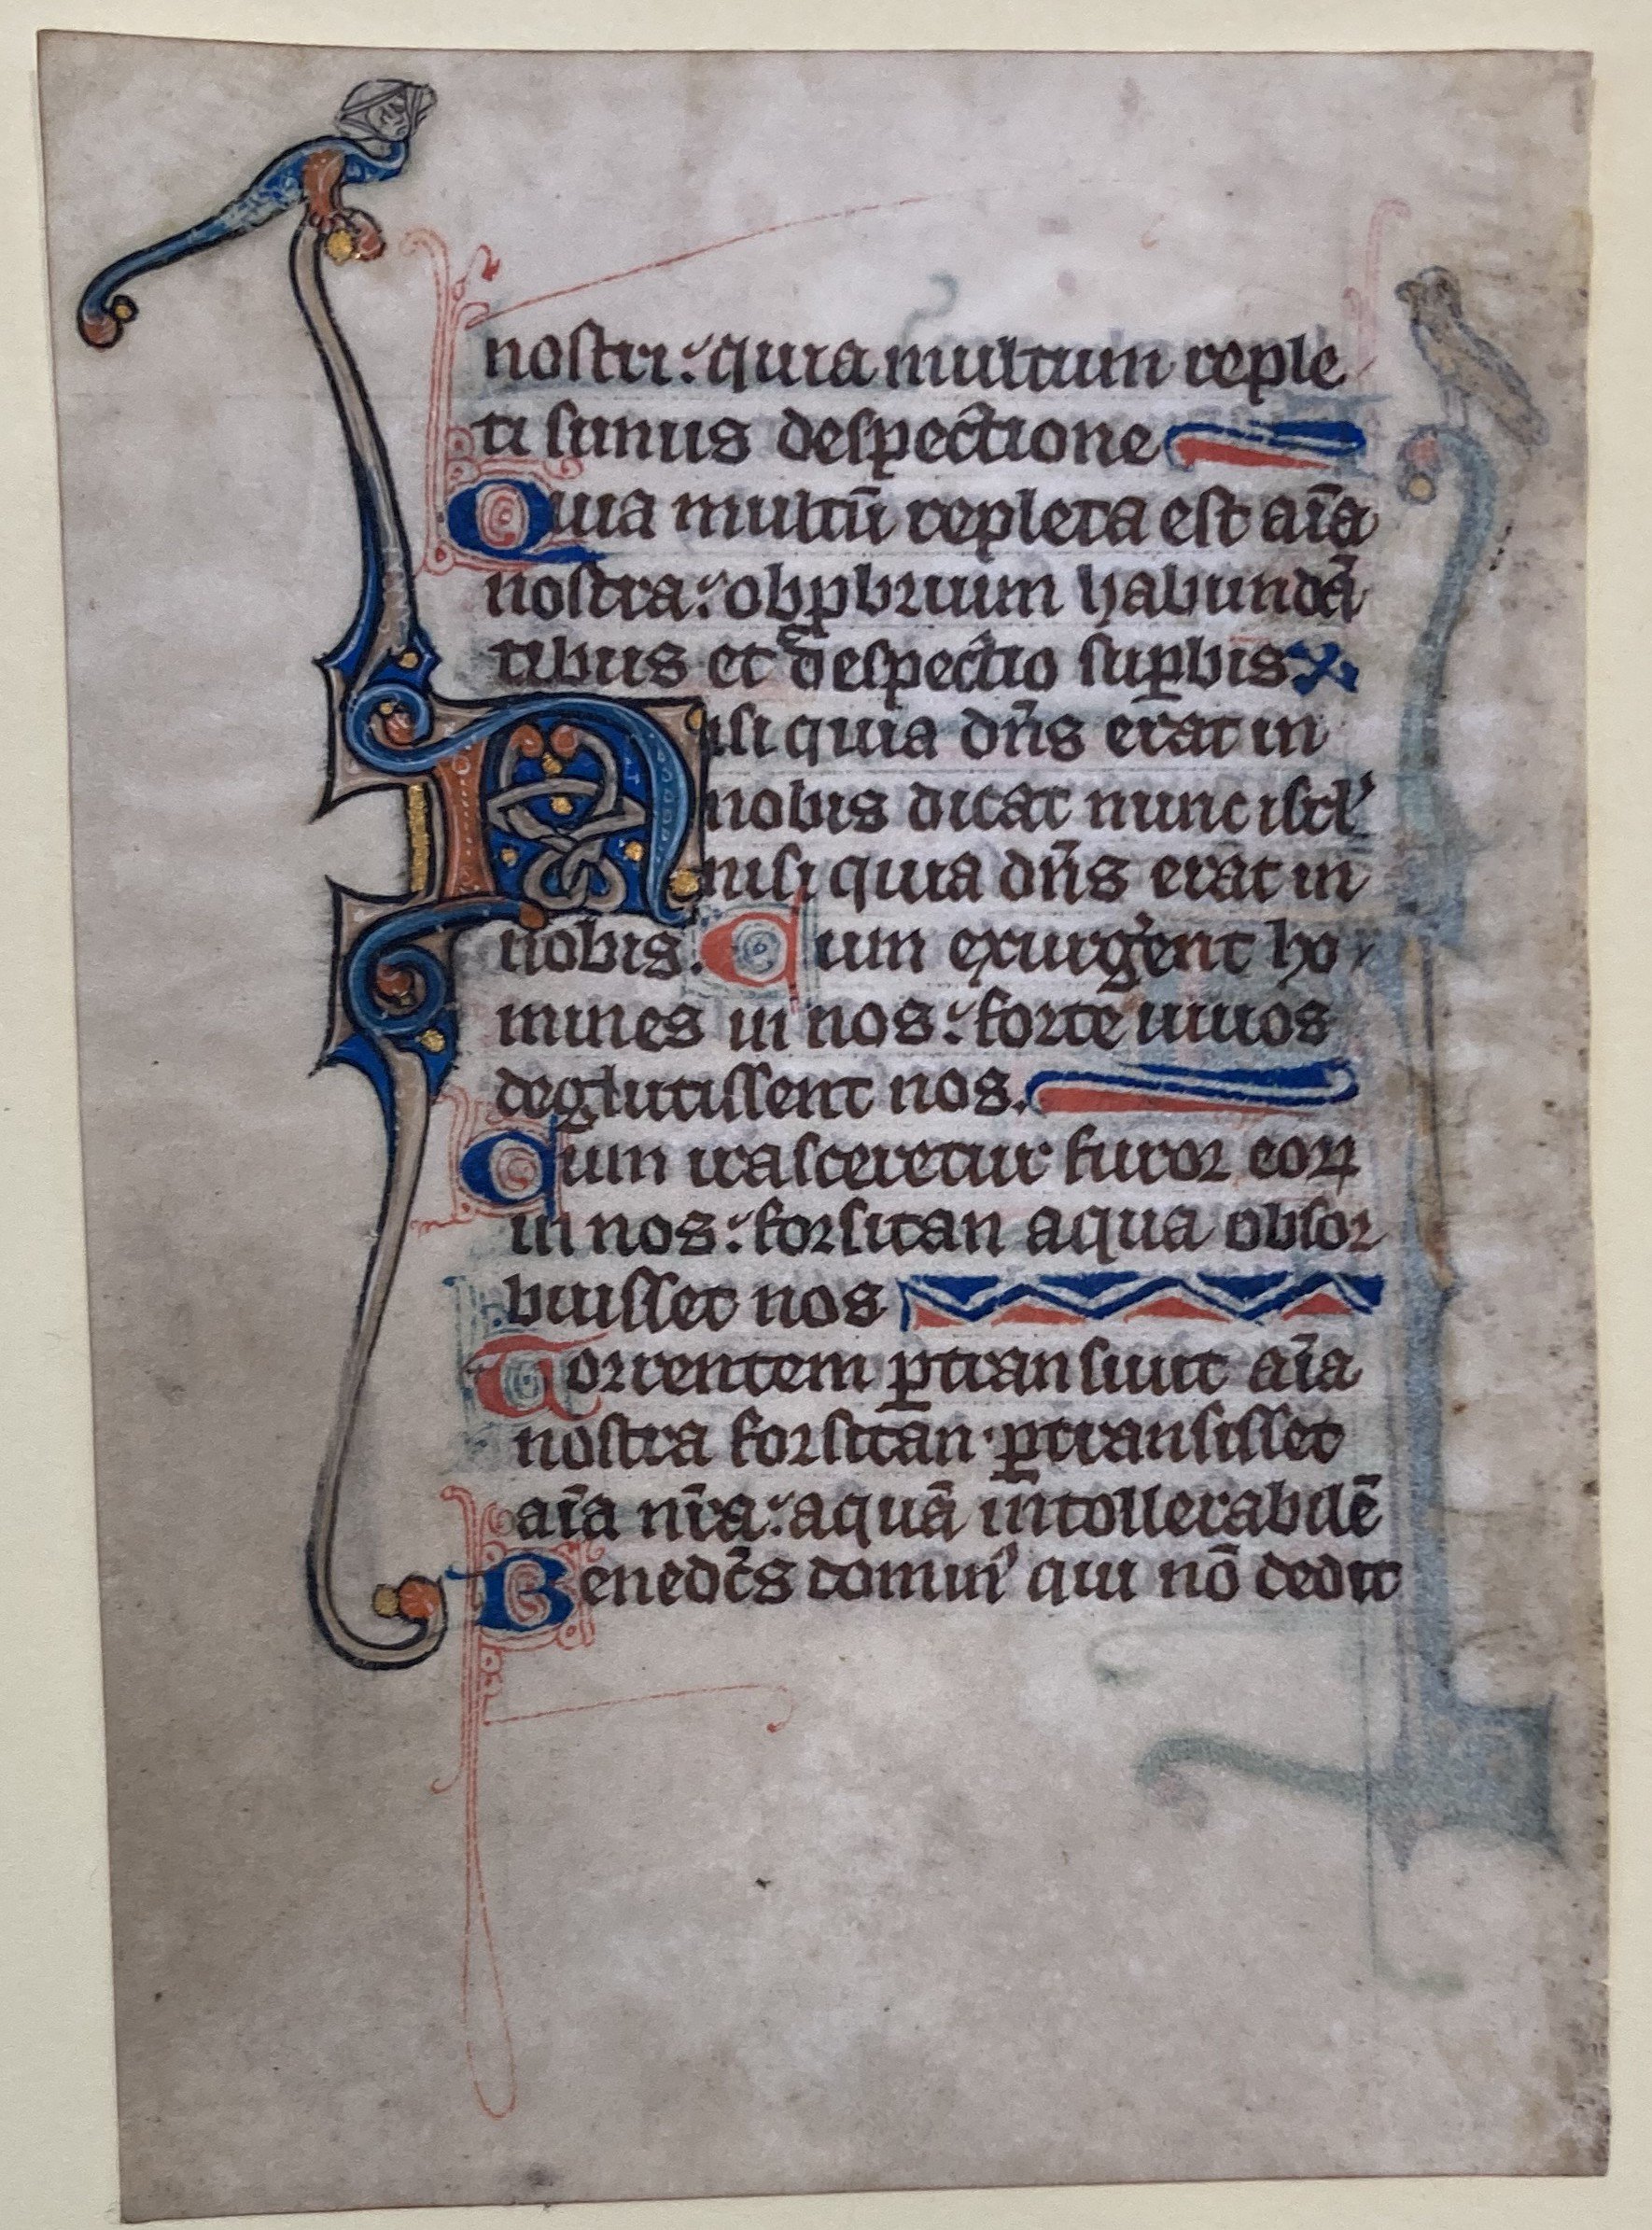 nostri: quia multum reple
ti sumus despectione
Quia multū repleta est aīa
nostra: obꝓbrium habundā
tibus et despectio suꝑbis
Nisi quia dn̄s erat in
nobis dicat nunc isrl'
nisi quia dn̄s erat in
nobis. Cum exurgerent ho
mines in nos: forte uiuos
deglutissent nos.
Cum irasceretur furor eoꝝ
in nos: forsitan aqua obsor
buisset nos
Torrentem ꝑtransiuit aīa
nostra forsitan ꝑtransisset
aīa nr̄a: aquā intollerabilē
Benedc̄s domin' qui nō dedit